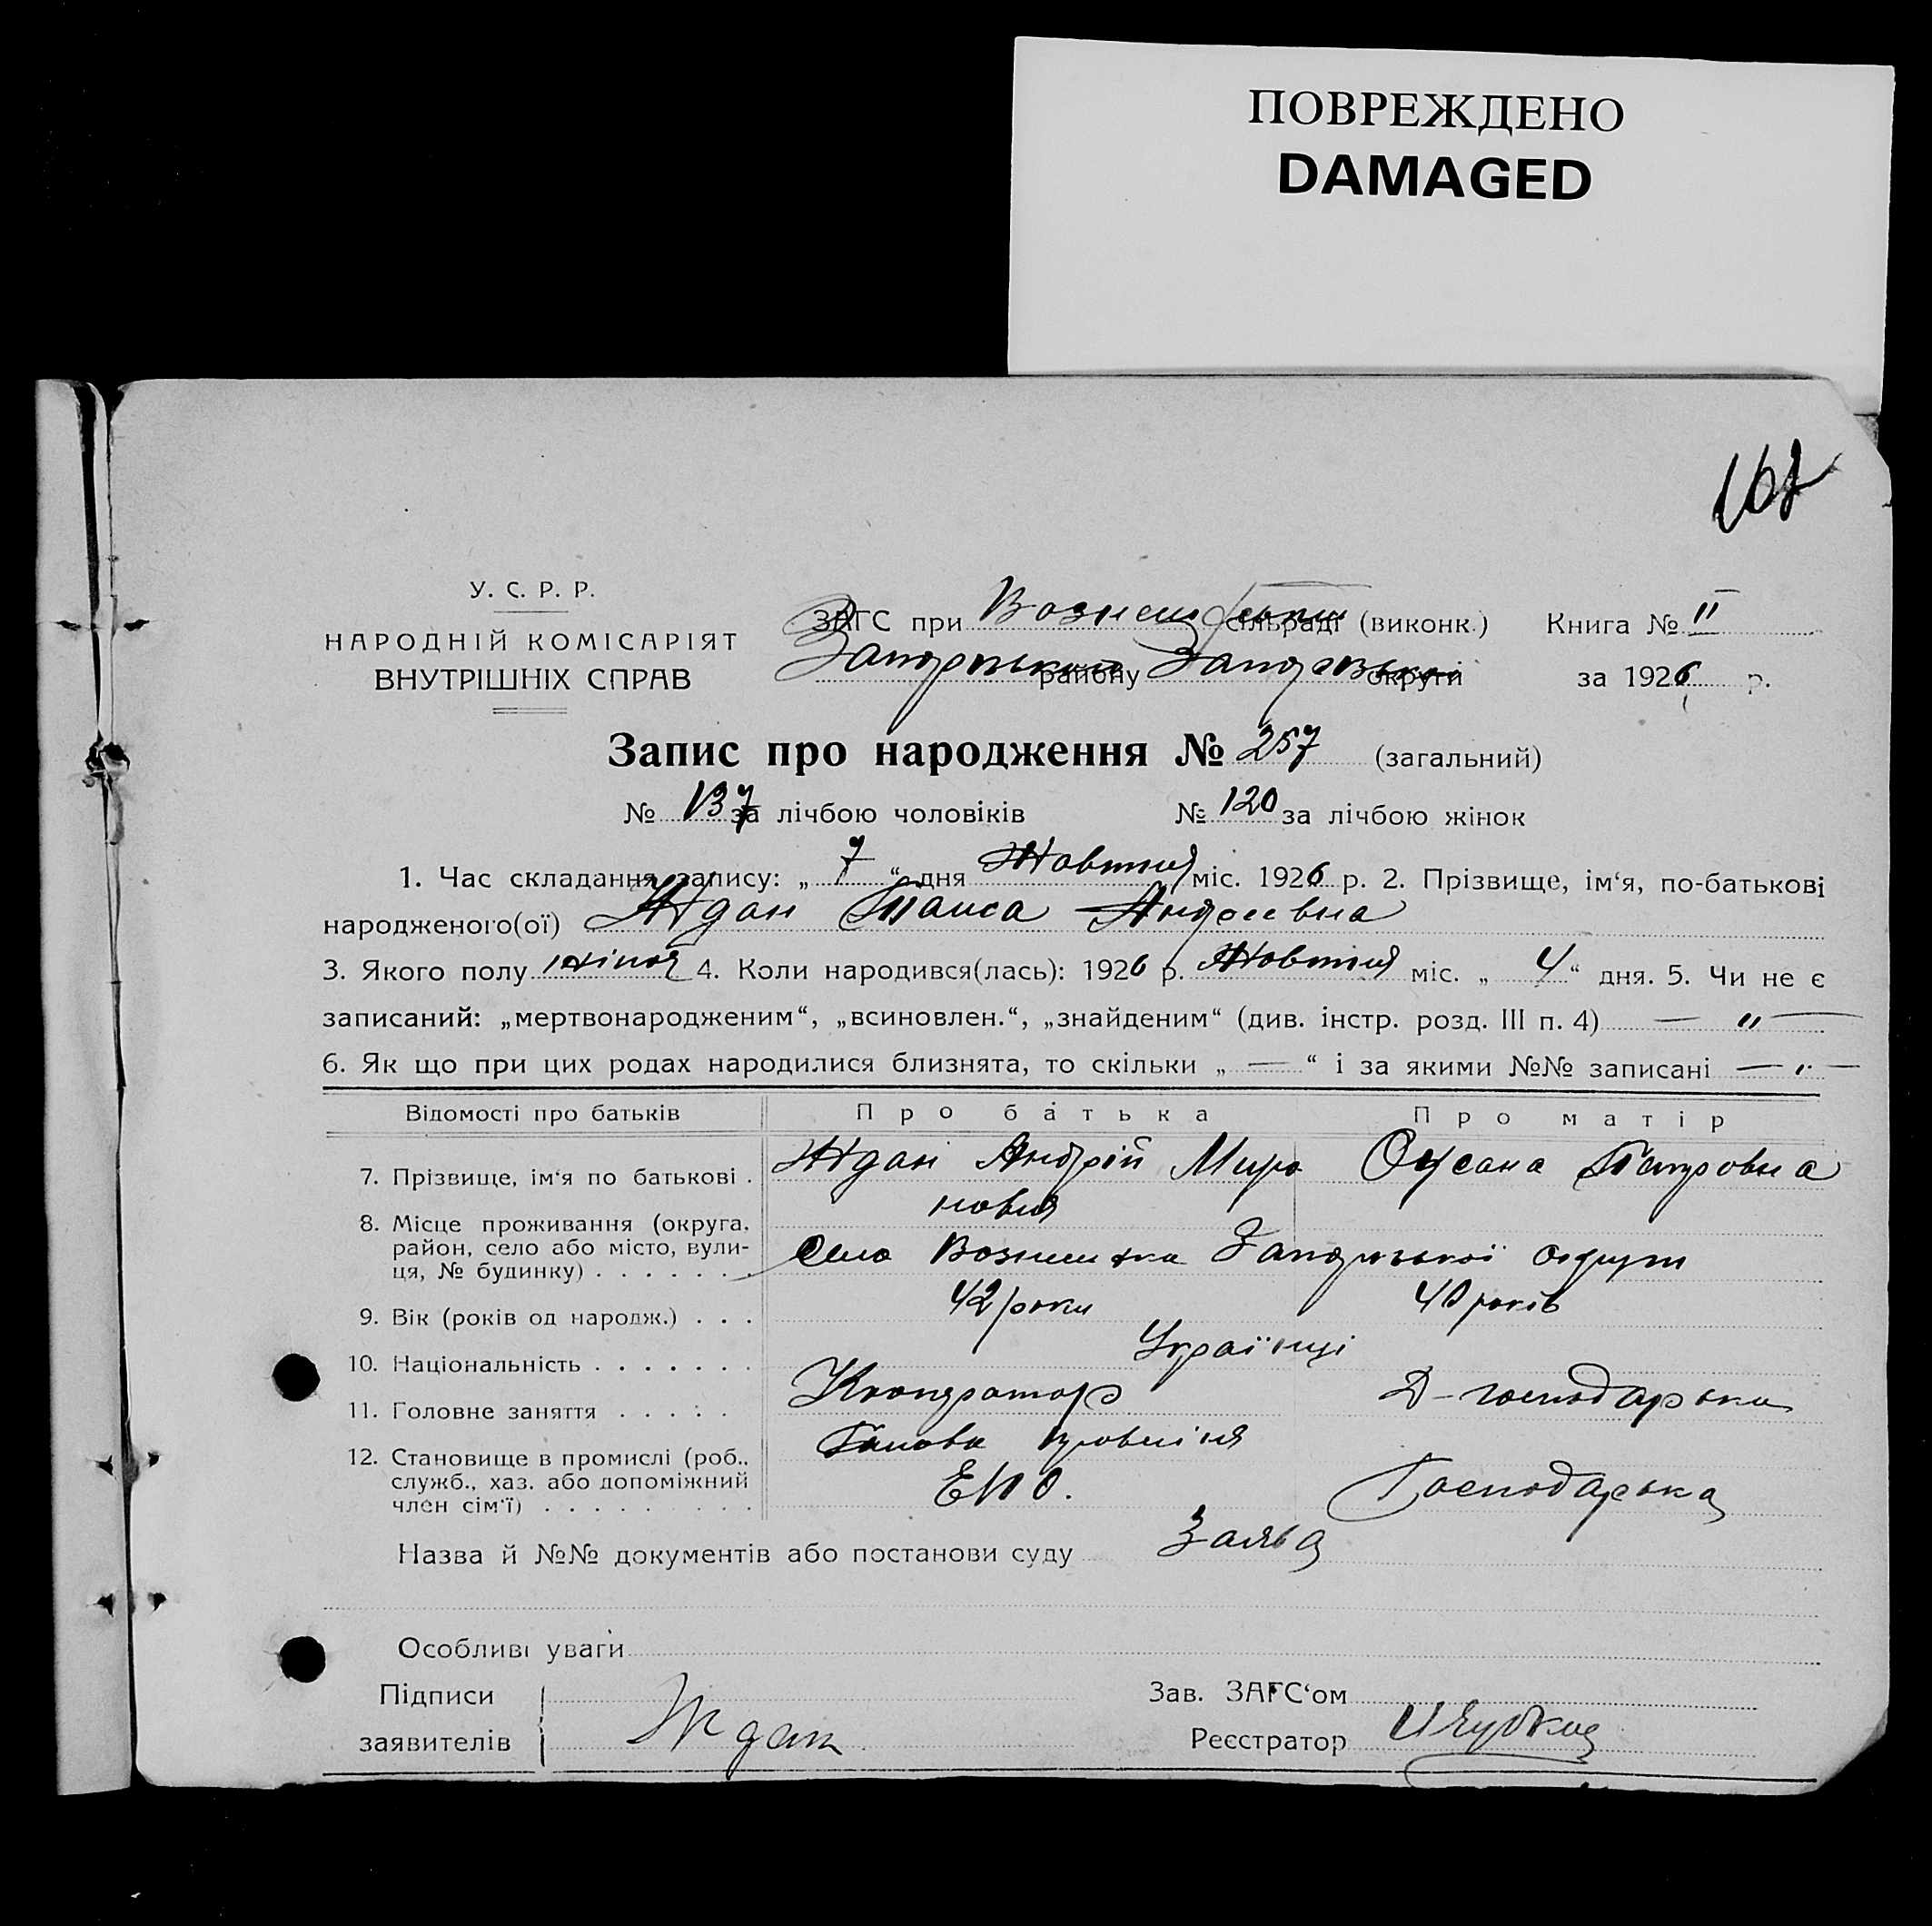 ПОВРЕЖДЕНО
DAMAGED
У. С. Р. Р.
НАРОДНІЙ КОМІСАРІЯТ
ВНУТРІШНІХ СПРАВ
ЗАГС при сільраді (виконк.) Книга № II
району округи за 1926 р.
Запис про народження № 257 (загальний)
№ 137 за лічбою чоловіків № 120 за лічбою жінок
1. Час складання запису: „ 7 “ дня Жовтня міс. 1926 р. 2. Прізвище, ім‘я, по-батькові
народженого(ої) Ждан Таиса Андреевна
3. Якого полу жіноч 4. Коли народився(лась): 1926 р. Жовтня міс. „ 4 “ дня. 5. Чи не є
записаний: „мертвонародженим“, „всиновлен.“, „знайденим“ (див. інстр. розд. III п. 4) — " —
6. Як що при цих родах народилися близнята, то скільки „ — “ і за якими №№ записані — " —
Відомості про батьків Про батька Про матір
7. Прізвище, ім‘я по батькові . Ждан Андрій Миро Оксана
новия
8. Місце проживання (округа,
район, село або місто, вули-
ця, № будинку) . . . . . . . Село Вознесенка Запорізької округи
9. Вік (років од народж.) . . . 42 роки 40 років
10. Національність . . . . . . . Українці
11. Головне заняття . . . . . Д-господарька
12. Становище в промислі (роб.,
служб., хаз. або допоміжний
член сім‘ї) . . . . . . . . . Господарька
Назва й №№ документів або постанови суду Заява
Особливі уваги
Підписи Зав. ЗАГС‘ом
заявителів Ждан Реєстратор